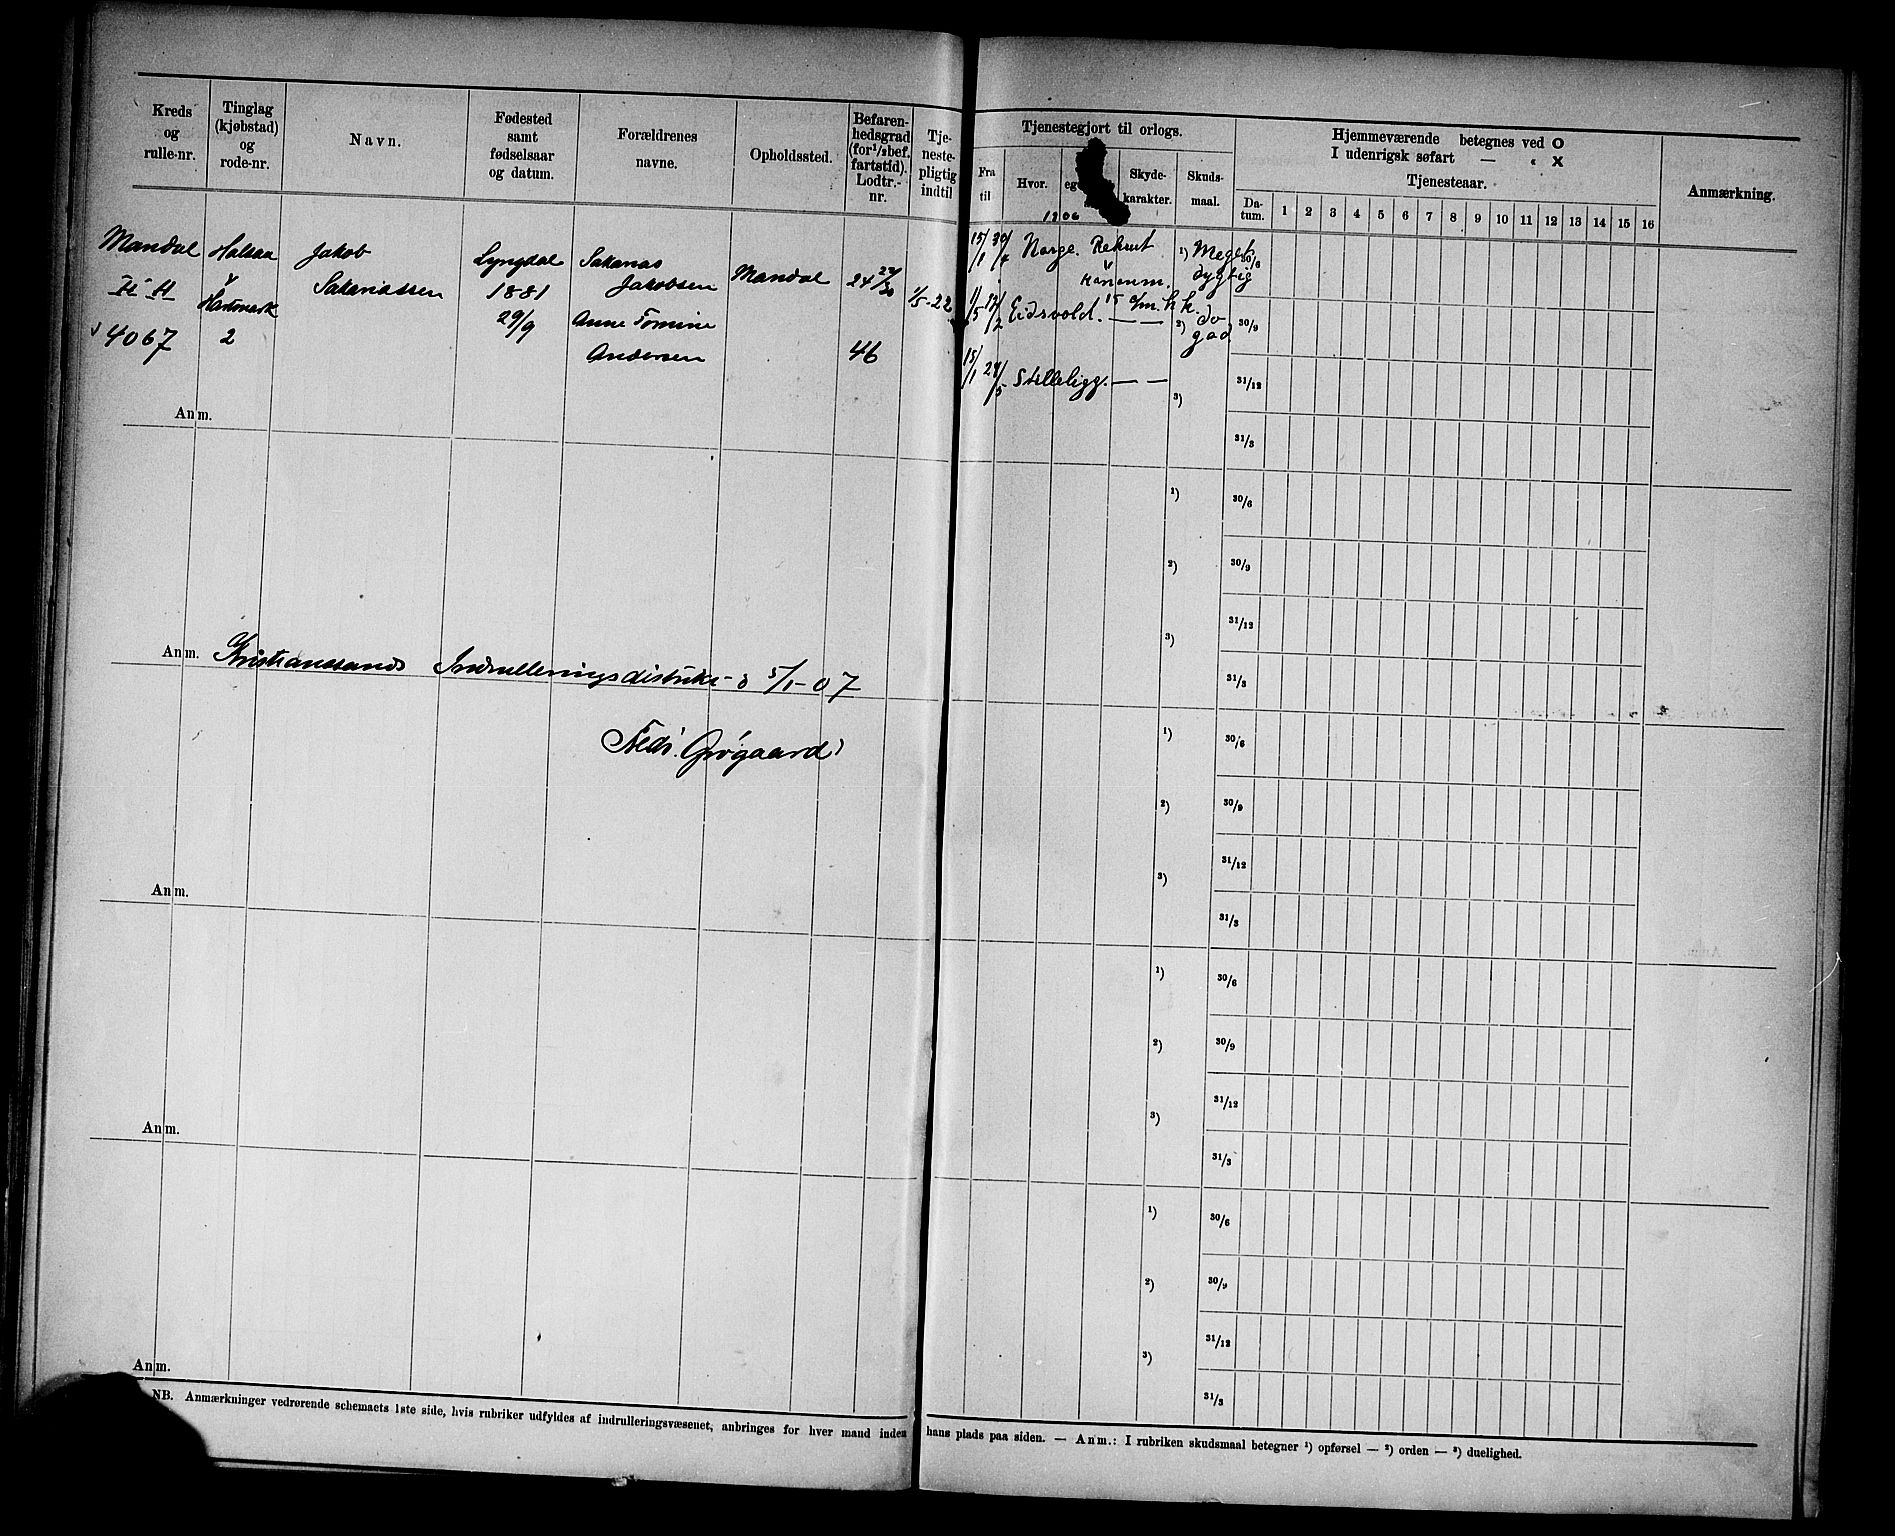 Kreds og rulle-nr.
Tinglag (kjøbstad) og rode-nr.
Navn.
Fødested samt fødselsaar og datum.
Forældrenes navne.
Opholdssted.
Befaren-hedsgrad (for 1/2 bef. fartstid). Lodtr.-nr.
Tje-neste-pligtig indtil
Tjenestegjort til orlogs.
Fra til
Hvor.
eg
Skyde-karakter.
Skuds-maal.
Hjemmeværende betegnes ved O
I udenrigsk søfart — " X
Tjenesteaar.
Da-tum. 1 2 3 4 5 6 7 8 9 10 11 12 13 14 15 16
Anmærkning.
Mandal
H H
4067
Halsaa
&
Hartmark
2
Jakob
Sakariassen
Lyngdal
1881
29/9
Sakarias
Jakobsen
Anne Tomine
Andersen
Mandal
24 24/30
46
1/5-22
1906
15/1 30/4 Norge. Rekrut
Kanonm.
1) Meget dygtig
Eidsvold. — —
15 c/m. k k.
2) do god
15/1 24/5 Stilleligg. — —
3)
30/6
30/9
31/12
31/3
Anm.
1)
2)
3)
30/6
30/9
31/12
31/3
Anm. Kristianssands Indrulleringsdistrikt 5/1-07
Fredr. Grøgaard
1)
2)
3)
30/6
30/9
31/12
31/3
Anm.
1)
2)
3)
30/6
30/9
31/12
31/3
Anm.
1)
2)
3)
30/6
30/9
31/12
31/3
Anm.
NB. Anmærkninger vedrørende schemaets 1ste side, hvis rubriker udfyldes af indrulleringsvæsenet, anbringes for hver mand inden hans plads paa siden. — Anm.: I rubriken skudsmaal betegner 1) opførsel — 2) orden — 3) duelighed.